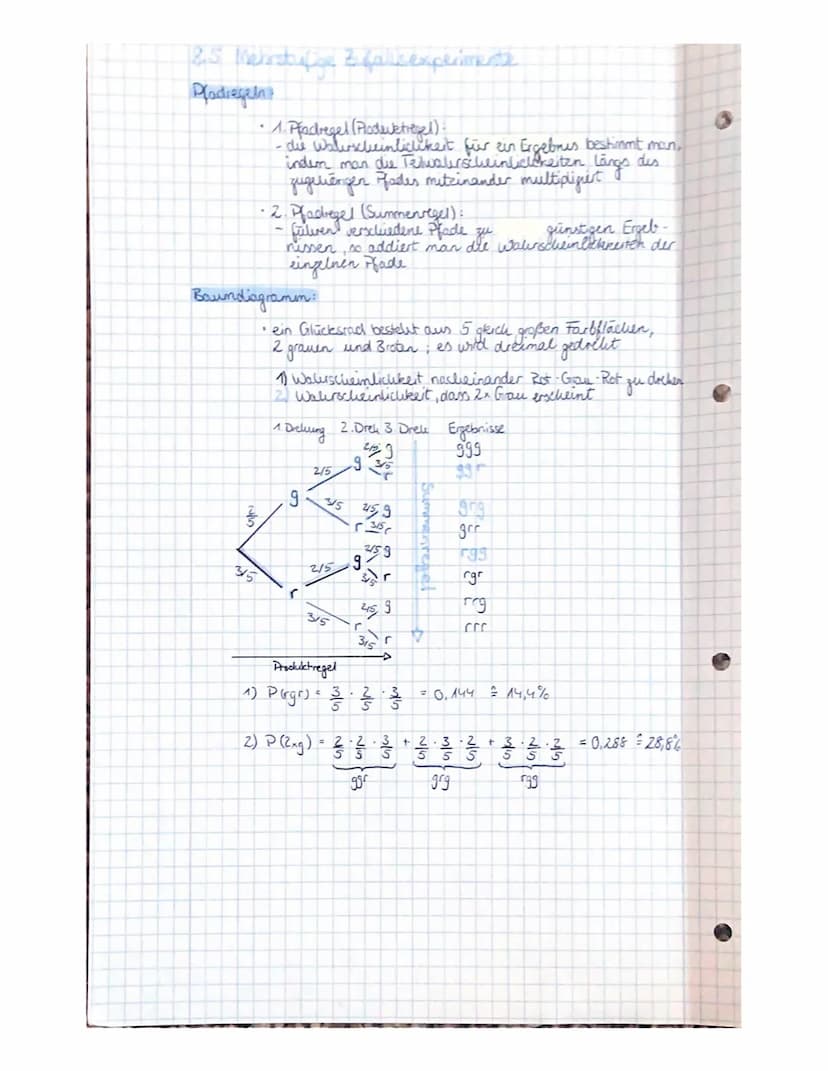 2.5 Mehrstufige Zufallsexperimente
Pfadregeln:
· 1. Pfadregel (Produktregel):
- die Wahrscheinlichkeit für ein Ergebnis bestimmt man,
indem man die Teilwahrscheinlichkeiten längs des
zugehörigen Pfades miteinander multipliziert
· 2. Pfadregel (Summenregel):
- führen verschiedene Pfade zu günstigen Ergeb-
nissen, so addiert man die Wahrscheinlichkeiten der
einzelnen Pfade
Baumdiagramm:
· ein Glücksrad besteht aus 5 gleich großen Farbflächen,
2 grauen und 3 roten ; es wird dreimal gedreht
1) Wahrscheinlichkeit nacheinander Rot-Grau-Rot zu drehen
2) Wahrscheinlichkeit, dass 2x Grau erscheint
1. Drehung 2. Dreh 3. Dreh Ergebnisse
2/5 g ggg
2/5 g 3/5 r ggr
2/5 g 3/5 2/5 g grg
r 3/5 r grr
2/5 g rgg
3/5 2/5 g 3/5 r rgr
r 2/5 g rrg
3/5 r 3/5 r rrr
Summenregel
Produktregel
1) P(rgr) = 3/5 · 2/5 · 3/5 = 0,144 ≙ 14,4%
2) P(2xg) = 2/5 · 2/5 · 3/5 + 2/5 · 3/5 · 2/5 + 3/5 · 2/5 · 2/5 = 0,288 ≙ 28,8%
ggr grg rgg